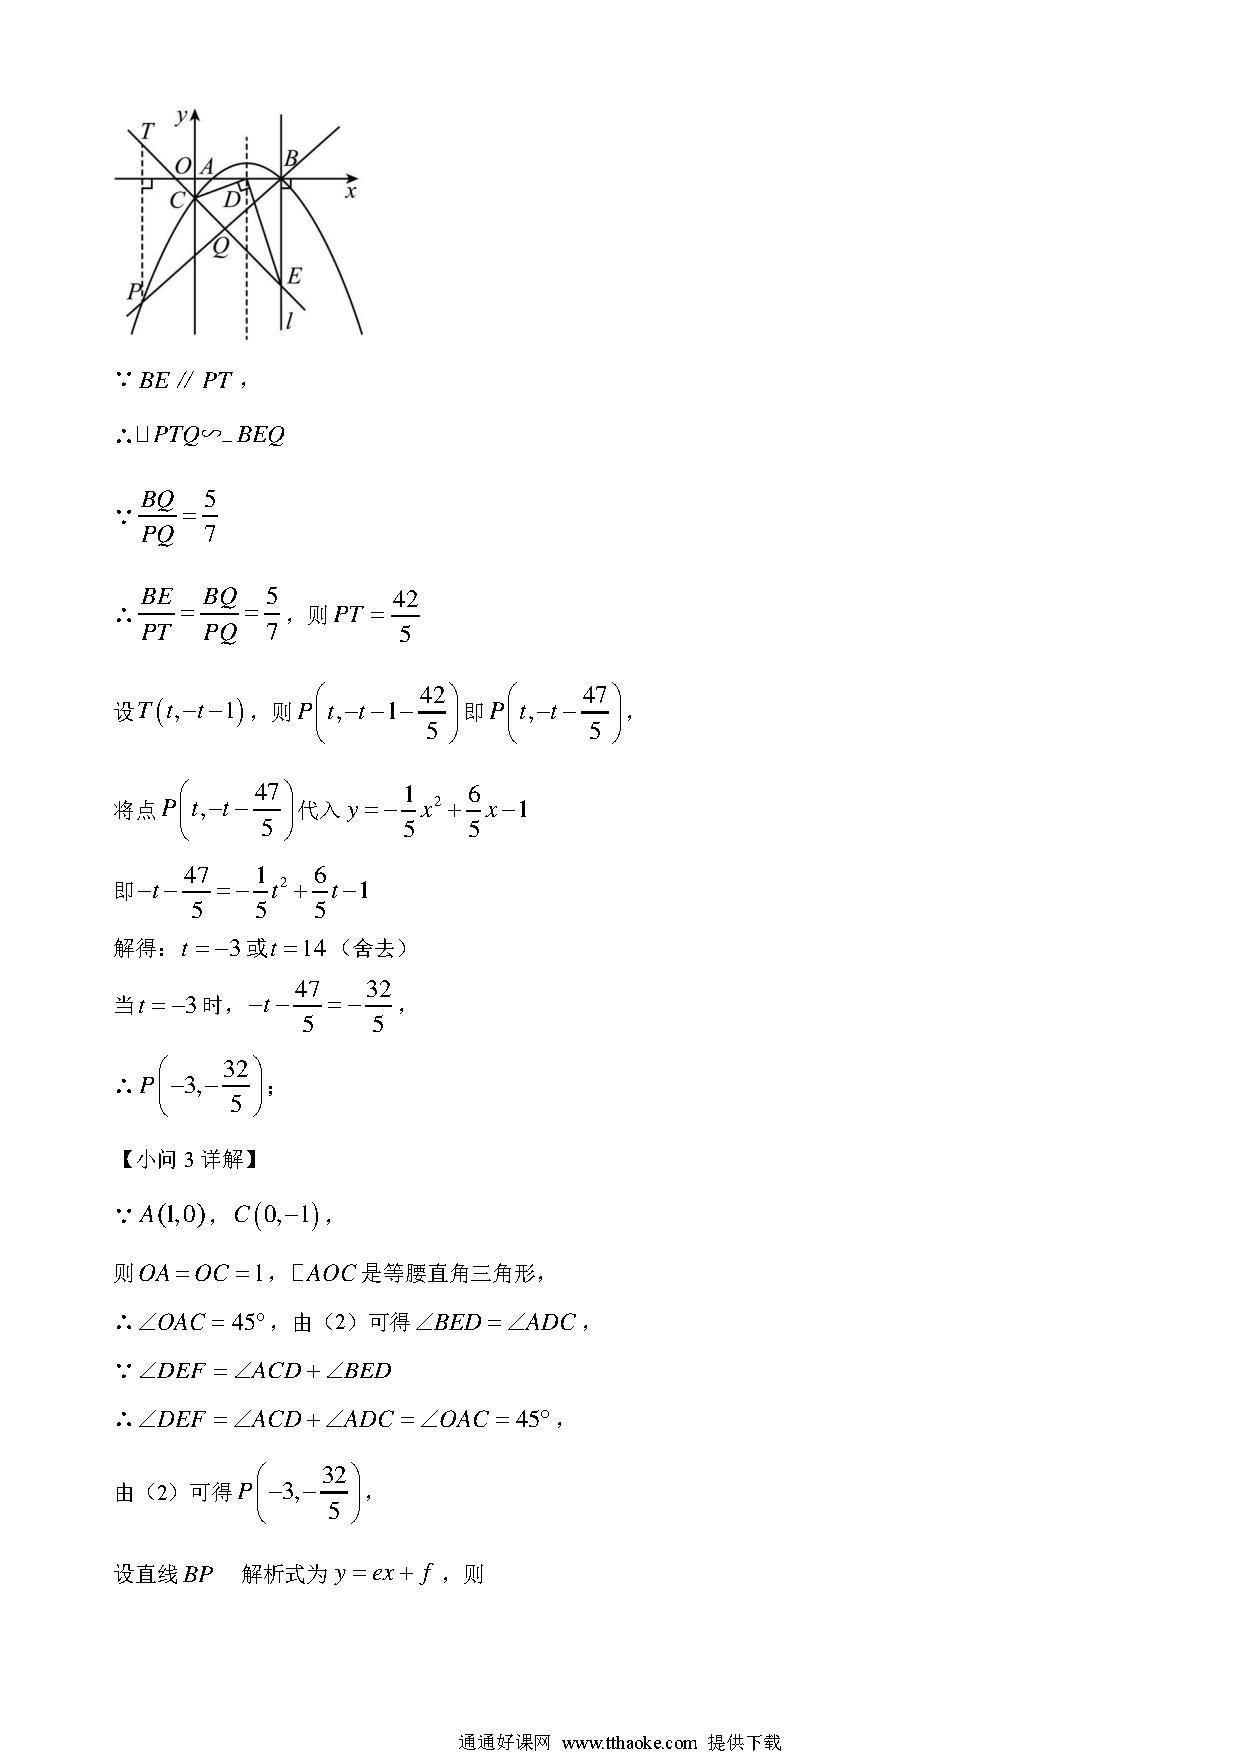 y
T
O A B
x
C D
Q
P E
l
∵BE∥PT，
∴□PTQ∽_BEQ
∵BQ/PQ=5/7
∴BE/PT=BQ/PQ=5/7，则PT=42/5
设T(t,−t−1)，则P(t,−t−1−42/5)即P(t,−t−47/5)，
将点P(t,−t−47/5)代入y=−1/5x²+6/5x−1
即−t−47/5=−1/5t²+6/5t−1
解得：t=−3或t=14（舍去）
当t=−3时，−t−47/5=−32/5，
∴P(−3,−32/5)；
【小问3详解】
∵A(1,0)，C(0,−1)，
则OA=OC=1，□AOC是等腰直角三角形，
∴∠OAC=45°，由（2）可得∠BED=∠ADC，
∵∠DEF=∠ACD+∠BED
∴∠DEF=∠ACD+∠ADC=∠OAC=45°，
由（2）可得P(−3,−32/5)，
设直线BP 解析式为y=ex+f，则
通通好课网 www.tthaoke.com 提供下载